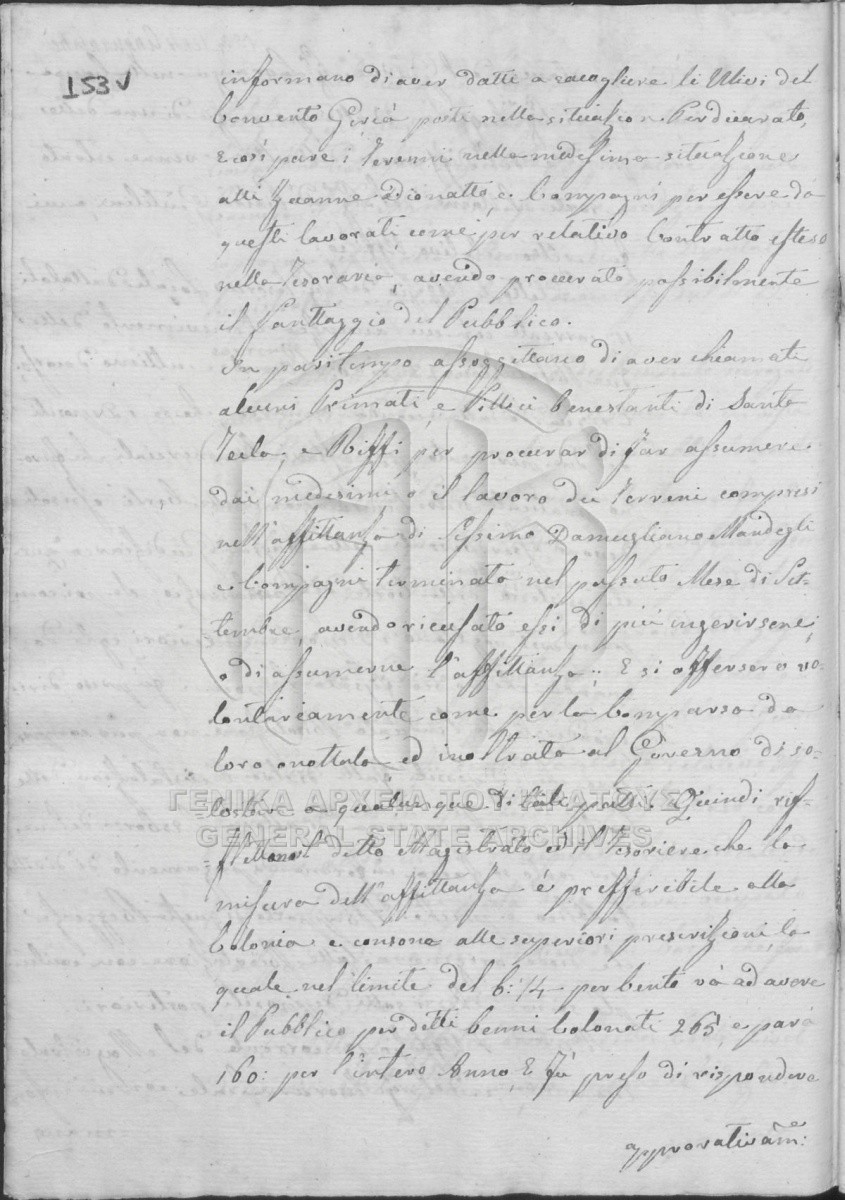 153v
informano di aver datti a raccogliere li Ulivi del
Convento Gerià posti nella situazion Perdicarato,
E così pure i Terreni nella medesima situazione
alli Zuanne Dionatto e Compagni per essere da
questi lavorati come per relativo Contratto esteso
nella Tesoraria, avendo procurato possibilmente
il Vantaggio del Pubblico.
In pari tempo assoggettano di aver chiamati
alcuni Primati, e Villici benestanti di Santa
Tecla, e Riffi per procurar di far assumere
dai medesimi o il lavoro dei Terreni compresi
nell'affittanza di Sissimo Damugliano Mandegli
e Compagni terminato nel passato Mese di Set-
tembre, avendo ricusato essi di più ingerirsene,
o di assumerne l'affittanza; E si offersero vo-
lontariamente come per la Comparsa da
loro anottata ed inoltrata al Governo di so-
lostere a qualunque di tali patti. Quindi rif-
=flettono detto Magistrato ed il Tesoriere che la
misura dell'affittanza è prefferibile alla
Colonia e consona alle superiori prescrizioni, la
quale nel limite del 6: 14 per Cento và ad avere
il Pubblico per ditti benni Colonati 265, e para
160: per l'intero Anno, E fù preso di rispondere
approvativam:e:
ΓΕΝΙΚΑ ΑΡΧΕΙΑ ΤΟΥ ΚΡΑΤΟΥΣ
GENERAL STATE ARCHIVES